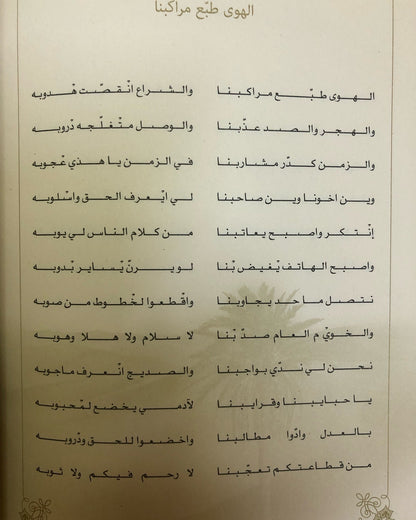 الهوى طبّع مراكبنا
الهوى طبّع مراكبنا والشراع انْقصّت هْدوبه
والهجر والصد عذّبنا والوصل متْغلّجه دْروبه
والزمن كدّر مشاربنا في الزمن يا هذي عْجوبه
وين اخونا وين صاحبنا لي ايْعرف الحق واسْلوبه
إنْتكر واصبح يعاتبنا من كلام الناس لي يوبه
واصبح الهاتف يْغيض بْنا لو يرنّ يْساير بْدوبه
نتصل ماحد يجاوبنا واقْطعوا لخْطوط من صوبه
والخويّ م العام صدّ بْنا لا سلام ولا هلا وهوبه
نحن لي ندّي بواجبنا والصديج انْعرف ماجوبه
يا حبايبنا وقرايبنا لآدمي يخضع لمْحبوبه
بالعدل وادّوا مطالبنا واخضعوا للحق ودْروبه
من قطاعتكم تعجّبنا لا رحم فيكم ولا ثوبه